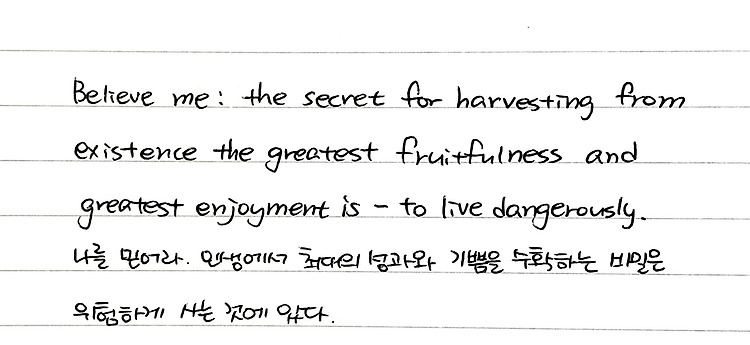 Believe me: the secret for harvesting from
existence the greatest fruitfulness and
greatest enjoyment is - to live dangerously.
나를 믿어라. 인생에서 최대의 성과와 기쁨을 수확하는 비밀은
위험하게 사는 것에 있다.